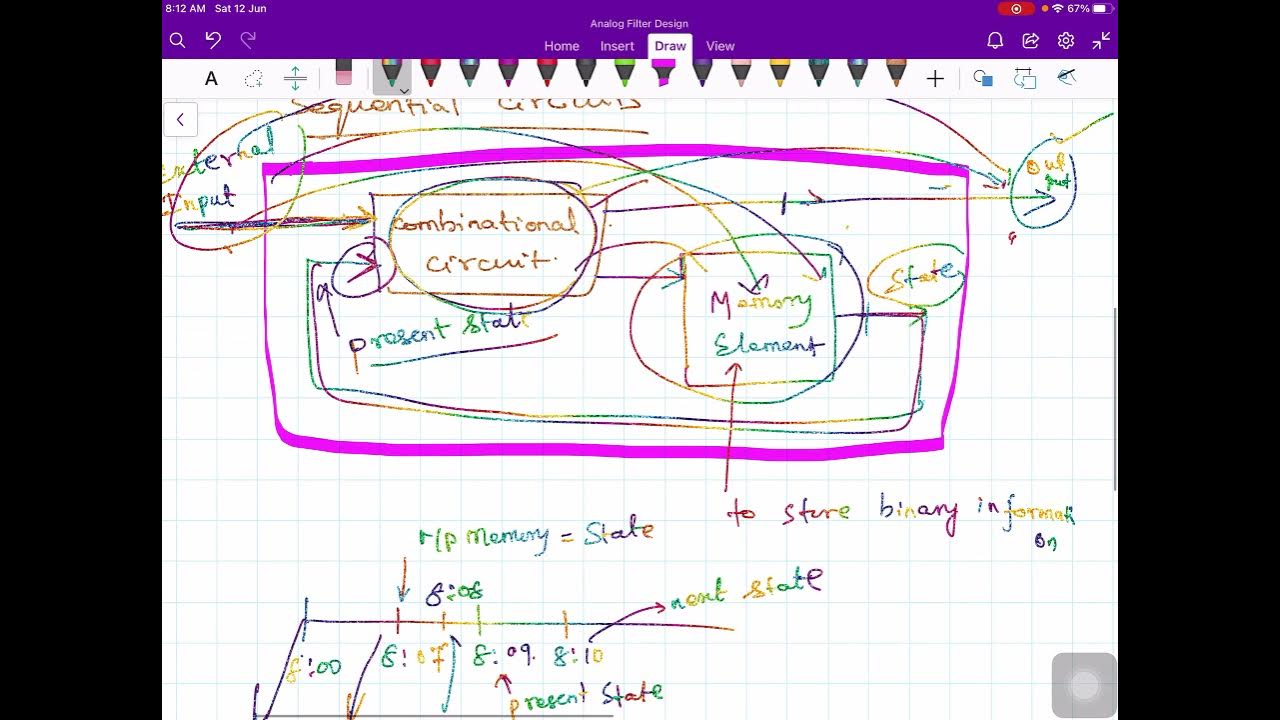 8:12 AM Sat 12 Jun
67%
Analog Filter Design
Home Insert Draw View
A
Sequential Circuits
External
Input
Combinational
circuit.
Out
put
State
present state
Memory
Element
to store binary informati
on
r/p memory = State
8:08
next state
8:00 8:07 8:09. 8:10
present state